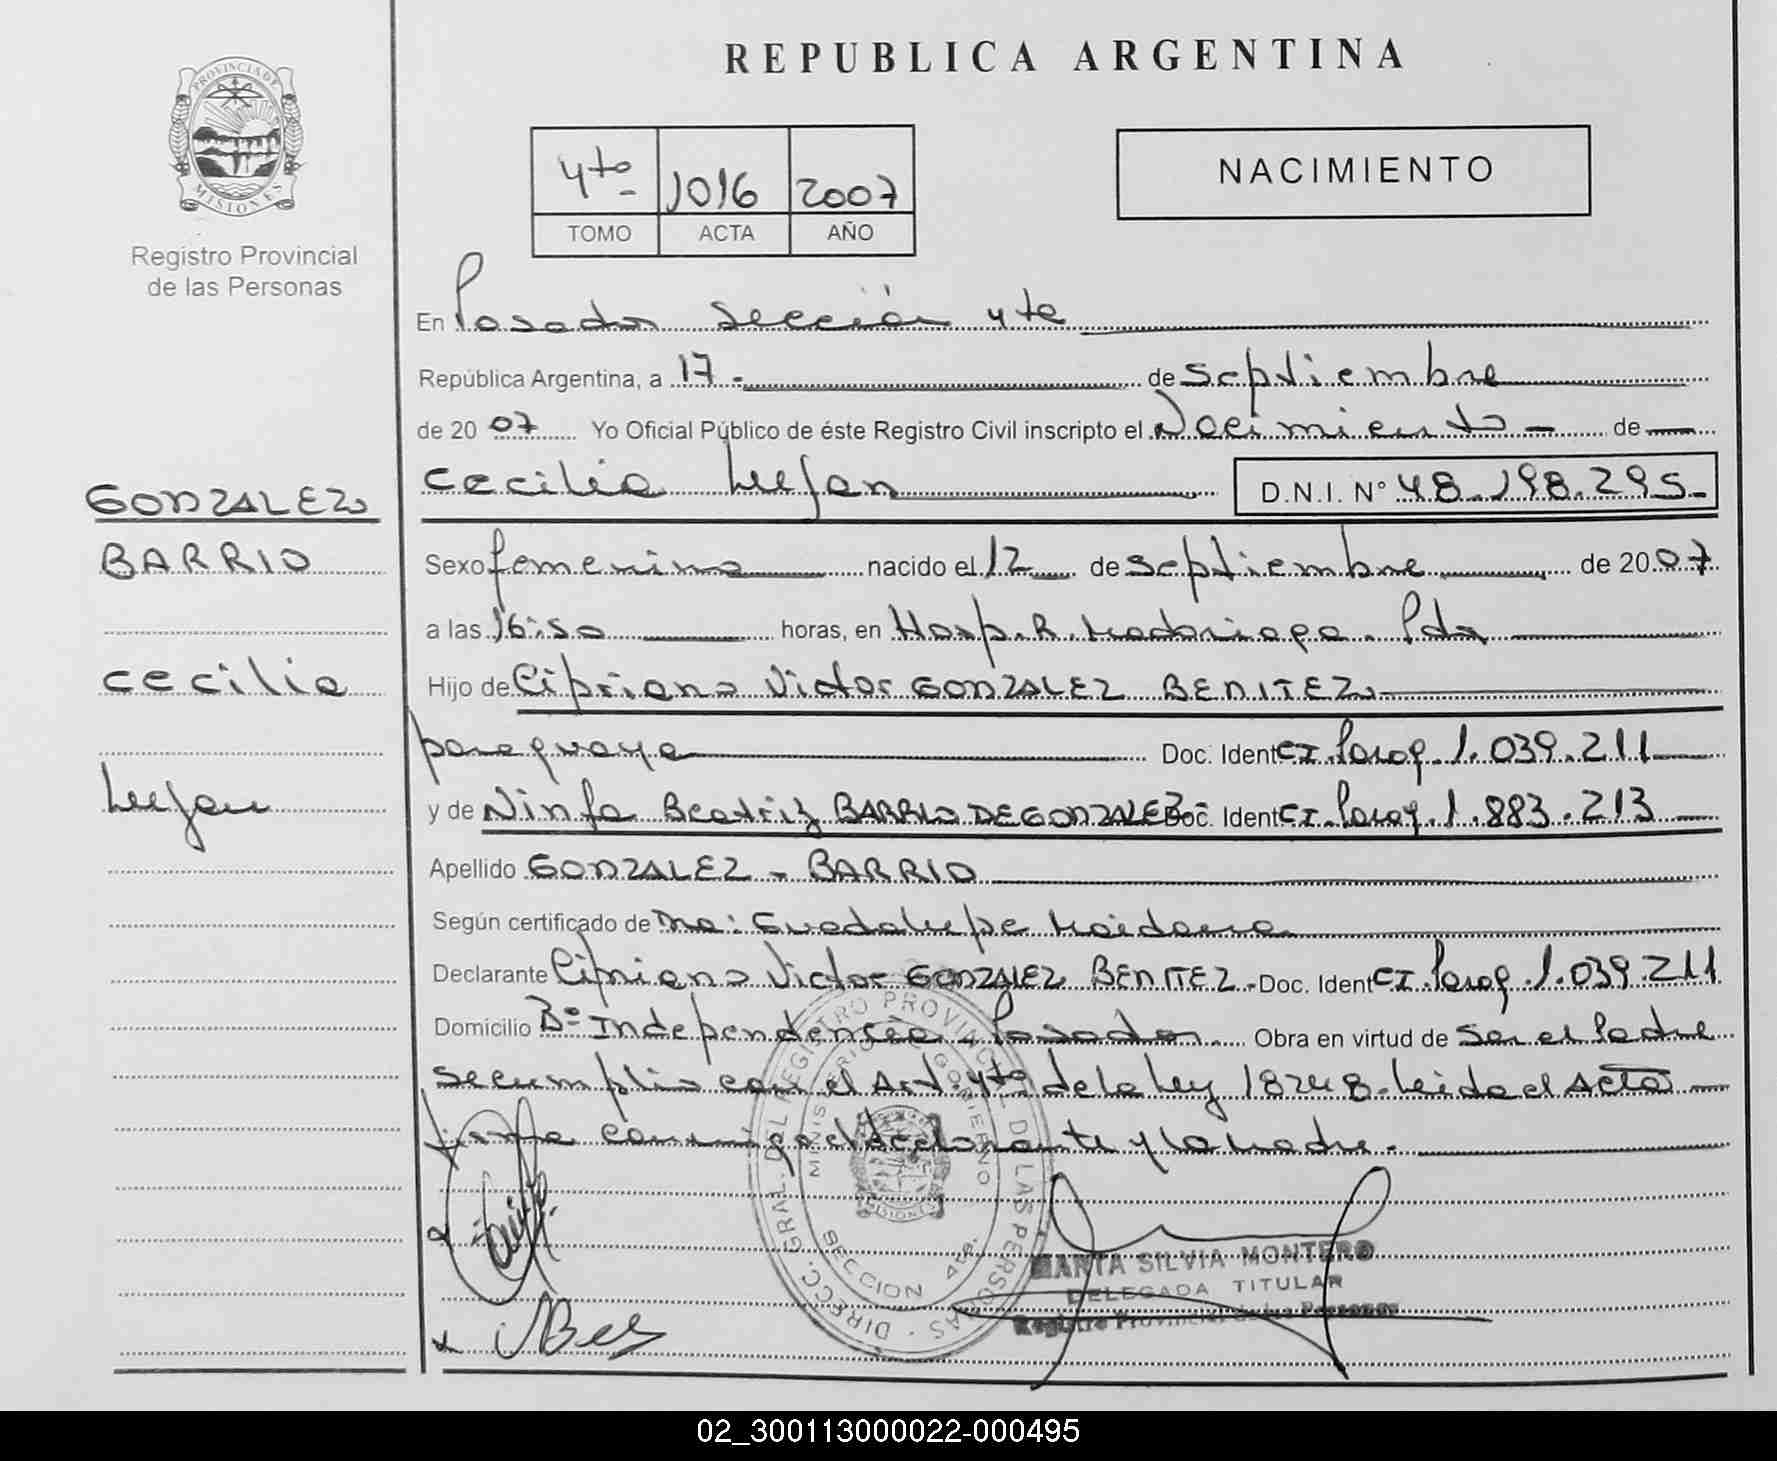 REPUBLICA ARGENTINA
PROVINCIA DE MISIONES
Registro Provincial
de las Personas
4to 1016 2007
TOMO ACTA AÑO
NACIMIENTO
En Posadas sección 4ta
República Argentina, a 17 de septiembre
de 2007 Yo Oficial Público de éste Registro Civil inscripto el Nacimiento - de
Cecilia Lujan D.N.I. Nº 48.198.295
GONZALEZ
BARRIO
Cecilia
Lujan
Sexo femenino nacido el 12 de septiembre de 2007
a las 16:50 horas, en Hosp. R. Madariaga. Pdas
Hijo de Cipriano Victor GONZALEZ BENITEZ
paraguaya Doc. Ident CI. Parag. 1.039.211
y de Ninfa Beatriz BARRIO DE GONZALEZ Doc. Ident CI. Parag. 1.883.213
Apellido GONZALEZ - BARRIO
Según certificado de Ma: Guadalupe Maidana
Declarante Cipriano Victor GONZALEZ BENITEZ - Doc. Ident CI. Parag. 1.039.211
Domicilio Bº Independencia - Posadas. Obra en virtud de ser el Padre
se cumplio con el Art. 4to de la Ley 18248. Leida el Acta
firma conmigo el declarante y la Madre.
DIREC. GRAL. DEL REGISTRO PROVINCIAL DE LAS PERSONAS
MINISTERIO DE GOBIERNO
MISIONES
SECCION 4ta.
MARTA SILVIA MONTERO
DELEGADA TITULAR
Registro Provincial de las Personas
02_300113000022-000495